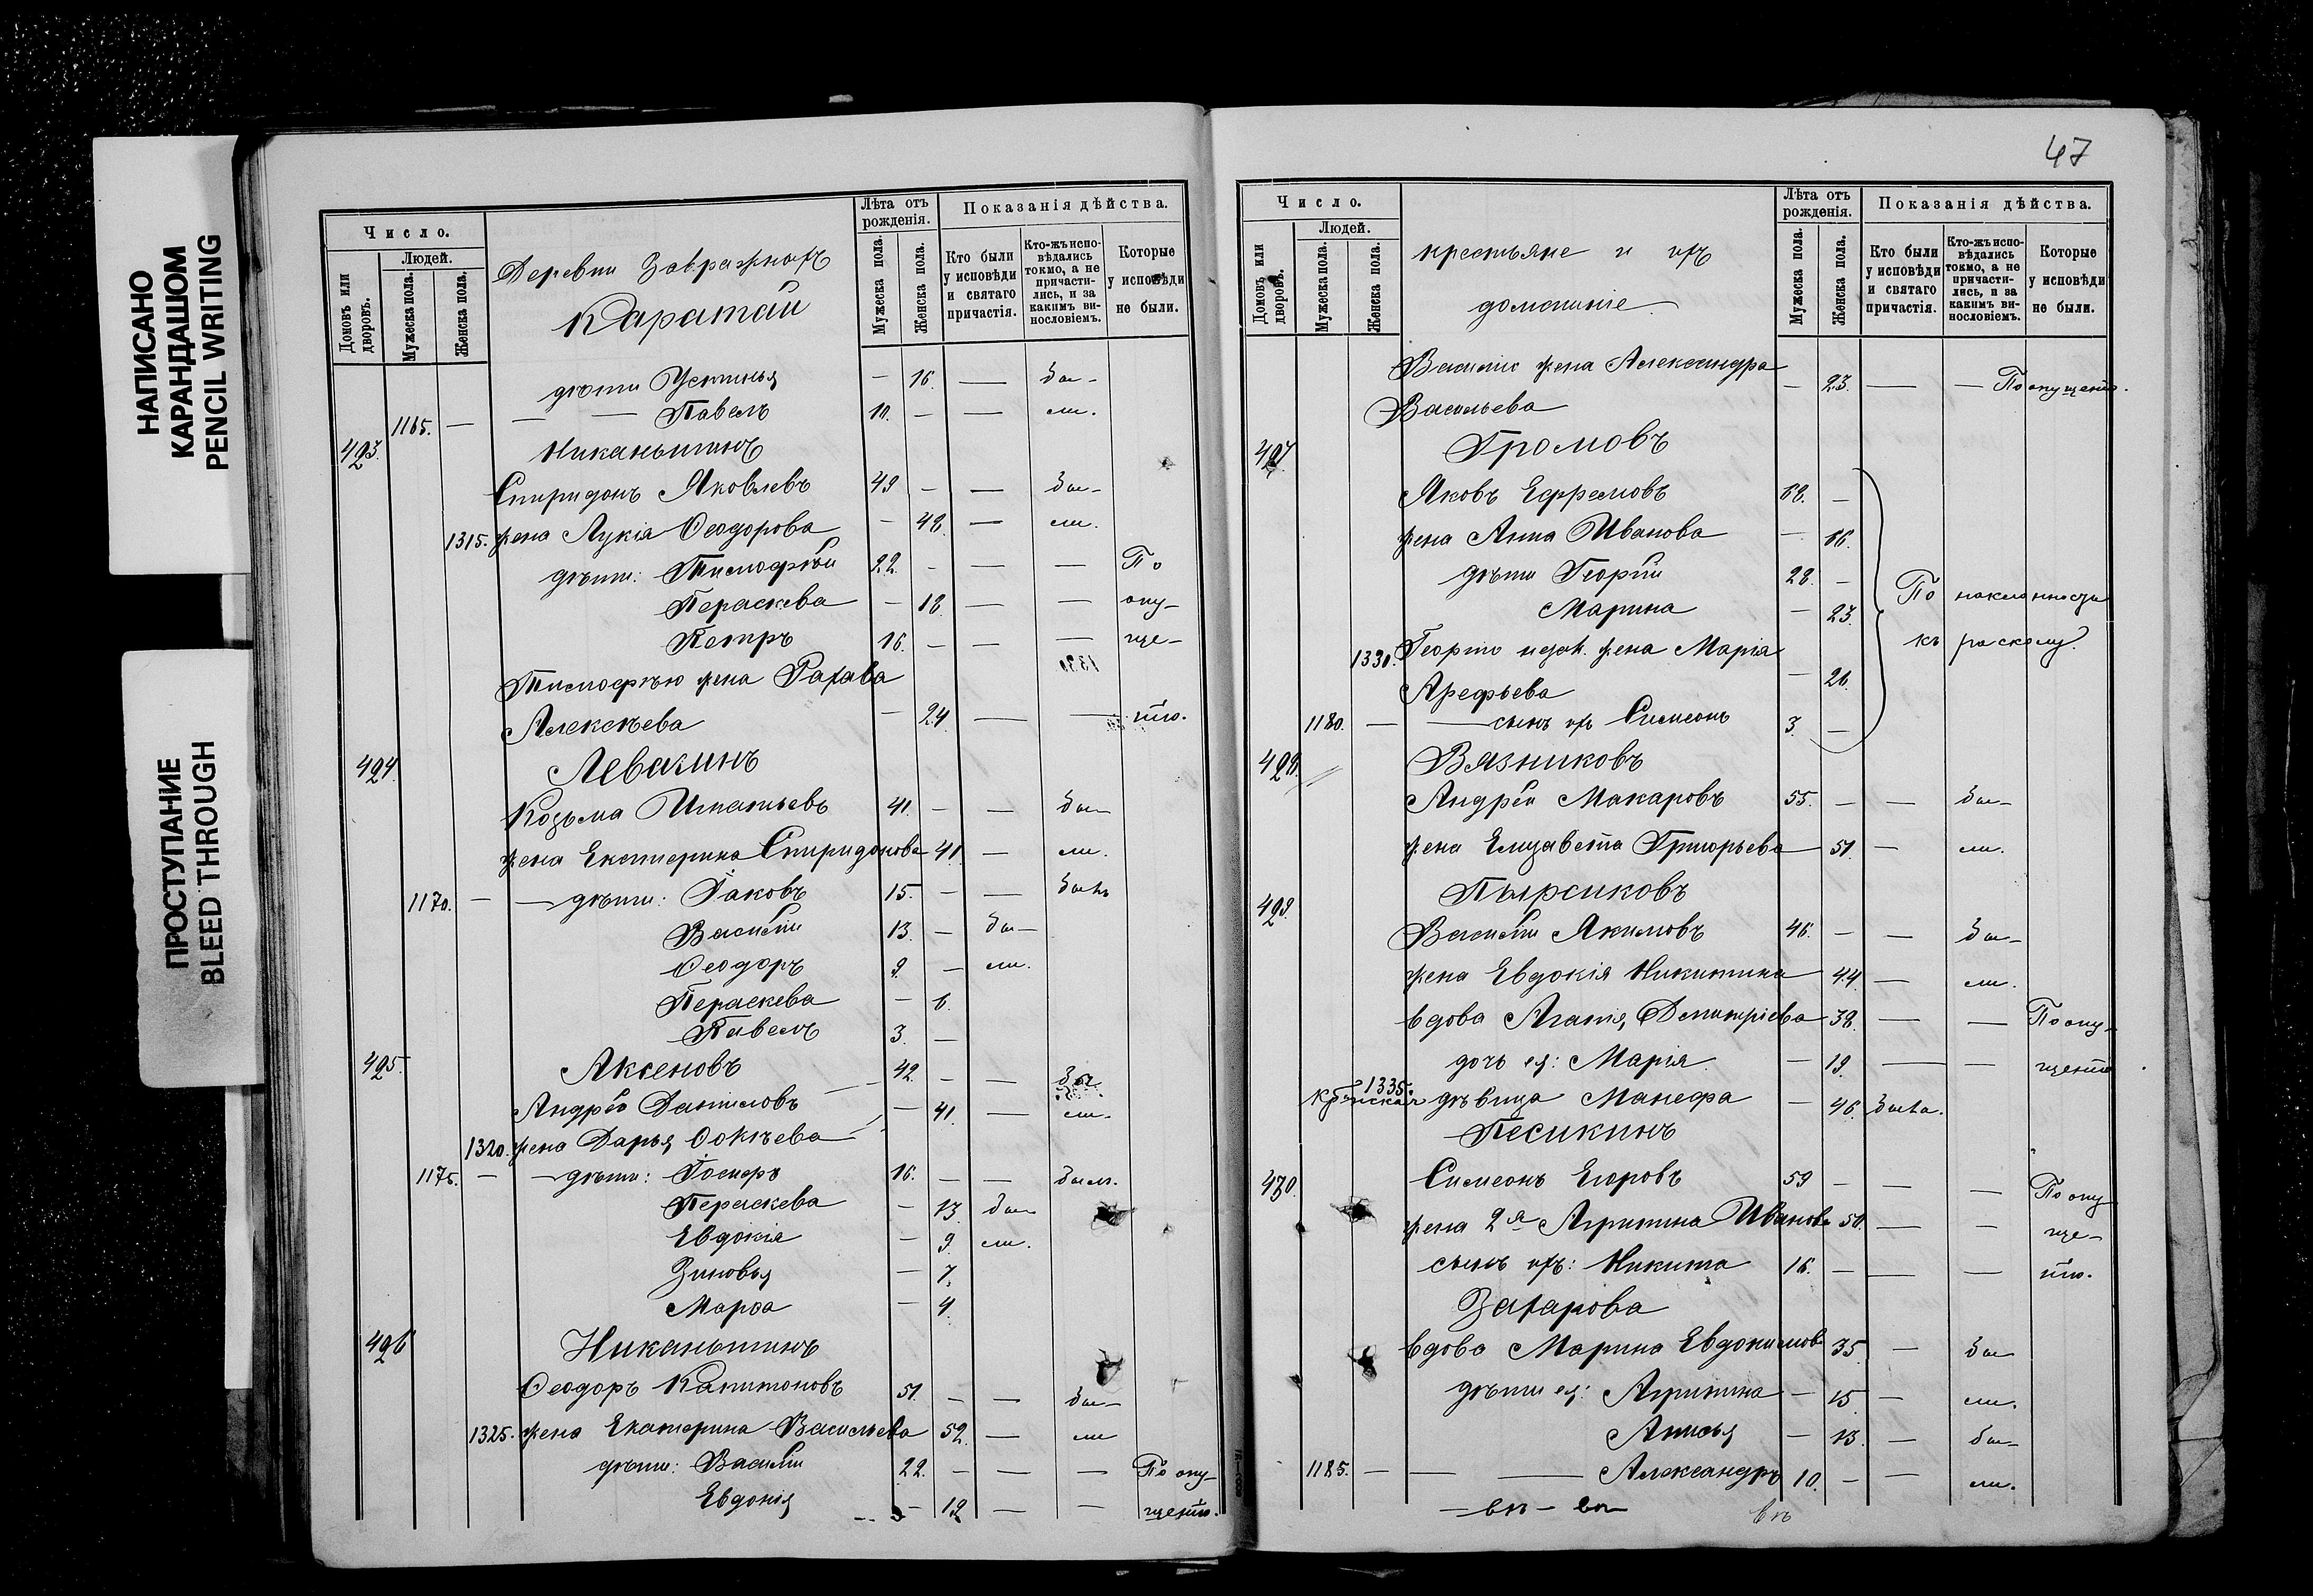 НАПИСАНО
КАРАНДАШОМ
PENCIL WRITING
ПРОСТУПАНИЕ
BLEED THROUGH
Число.
Людей.
Домовъ или дворовъ.
Мужеска пола.
Женска пола.
Деревни Завражныхъ
Каратай
Лѣта отъ рожденія.
Мужеска пола.
Женска пола.
Показанія дѣйства.
Кто были у исповѣди и святаго причастія.
Кто-жъ исповѣдались токмо, а не причастились, и за какимъ винословіемъ.
Которые у исповѣди не были.
дѣти Устинья — 16. — бы-
1165. — — — Павелъ 10. — — ли.
423. Никаньшинъ
Спиридонъ Яковлевъ 49 — — бы-
1315. жена Лукія Ѳеодорова — 48 — ли.
дѣти: Тимоѳей 22. — — — По
Параскева — 18 — — опу-
Петръ 16. — — — ще-
Тимоѳею жена
Алексѣева — 24 — — нію.
424. Левагинъ
Козьма Игнатьевъ 41. — — бы-
жена Екатерина Спиридонова 41. — ли.
1170. — — дѣти: Іаковъ 15. — — былъ
Василій 13. — бы-
Ѳеодоръ 9. — ли.
Параскева — 6.
Павелъ 3. —
425. Аксеновъ 42. — — бы
Андрей Даниловъ — 41. — ли.
1320. жена Дарья Ѳокѣева
1175. — — дѣти: Іосифъ 16. — — былъ.
Параскева — 13. бы-
Евдокія — 9. ли.
Зиновья — 7.
Марѳа — 4.
426 Никаньшинъ
Ѳеодоръ Капитоновъ 51. — — бы-
1325. жена Екатерина Васильева 52. — ли
дѣти: Василій 22. — — — По опу-
Евдокія — 12 — — щенію.
47
Число.
Людей.
Домовъ или дворовъ.
Мужеска пола.
Женска пола.
крестьяне и ихъ
домашніе.
Лѣта отъ рожденія.
Мужеска пола.
Женска пола.
Показанія дѣйства.
Кто были у исповѣди и святаго причастія.
Кто-жъ исповѣдались токмо, а не причастились, и за какимъ винословіемъ.
Которые у исповѣди не были.
Василію жена Александра
Васильева — 23. — — По опущенію.
427 Громовъ
Яковъ Ефремовъ 68. —
жена Анна Иванова — 66.
дѣти Георгій 28. —
Марина — 23.
По наклонности
къ расколу.
1330. Георгію жена Марія
Арефьева — 26.
1180. — — сынъ ихъ Симеонъ 3. —
428. Вязниковъ
Андрей Макаровъ 55. — — бы-
жена Елизавета Григорьева 51. — ли.
429. Пырсиковъ
Василій Якимовъ 46. — — бы-
жена Евдокія Никитина 44. — ли.
вдова Агапія Димитріева 38. — — По опу-
дочь ея: Марія — 19. — — щенію
1335. дѣвица Манефа — 46. была.
Песикинъ
430. Симеонъ Егоровъ 59 — — — По опу
жена 2я Агрипина Иванова 50. — — ще-
сынъ ихъ: Никита 16. — — — нію.
Захарова
вдова Марина Евдокимова 35 — бы
дѣти ея: Агрипина — 15 — ли.
Анисья — 13. — бы-
1185. — — — Александръ 10. — — ли.